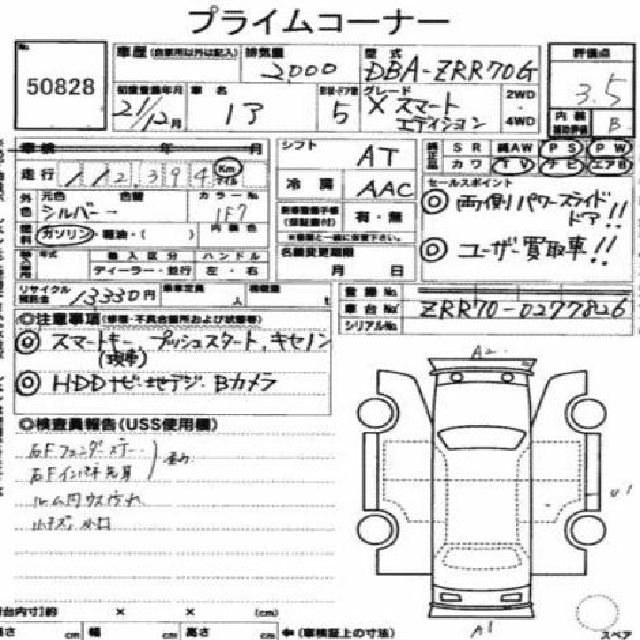 プライムコーナー
No.
50828
車歴(自家用以外は記入)
排気量
2,000
型式
DBA-ZRR70G
評価点
3.5
初度登録年月
21/12月
車名
ノア
形状・ドア数
5
グレード
X スマート
エディション
2WD
4WD
内装
補助評価
B
車検 年 月
シフト
AT
SR 純AW PS PW
カワ TV ナビ エアB
走行
112,394
Km
マイル
冷房
AAC
セールスポイント
◎ 両側パワースライド
ドア!!
◎ ユーザー買取車!!
外色
元色
シルバー
色替
カラーNo.
1F7
有・無
燃料
ガソリン・軽油・( )
内装色
年式
輸入区分
ハンドル
ディーラー・並行
左・右
名義変更期限
月 日
リサイクル
預託金
13330円
乗車定員
人
積載量
t
登録No.
車台No.
ZRR70-0277826
シリアルNo.
◎注意事項(修復・不具合箇所および状態等)
◎ スマートキー、プッシュスタート、キセノン
(現車)
◎ HDDナビ・地デジ・Bカメラ
◎検査員報告(USS使用欄)
右Fフェンダー
右Fインパネ
A2
U1
A1
(cm)
cm 幅 cm 高さ cm
←(車検証上の寸法)
スペア